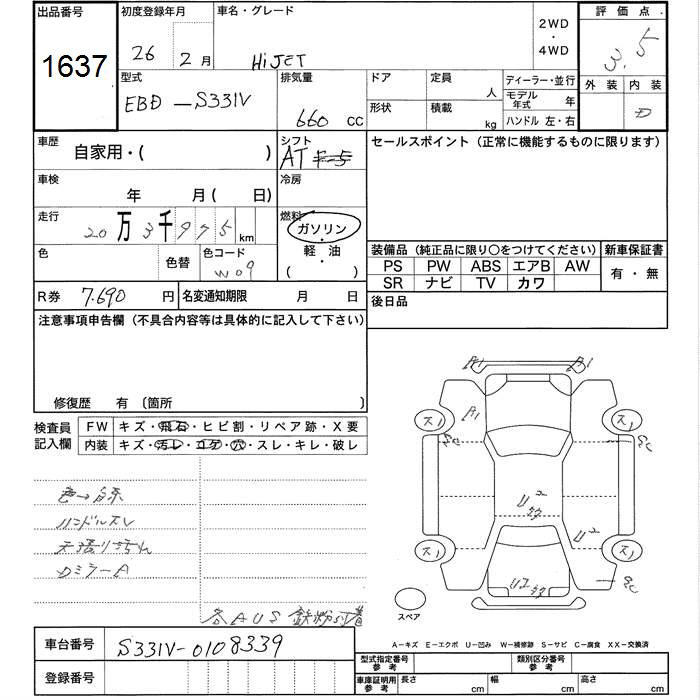 出品番号
1637
初度登録年月
26年 2月
車名・グレード
HiJET
2WD
・
4WD
評価点
3.5
型式
EBD-S331V
排気量
660 CC
ドア
定員
人
ディーラー・並行
モデル
年式
年
外装 内装
D
形状
積載
kg
ハンドル 左・右
車歴
自家用・( )
シフト
AT F-5
セールスポイント (正常に機能するものに限ります)
車検
年 月( 日)
冷房
走行
20万3千975km
燃料
ガソリン
・
軽・油
( )
色
色替
色コード
W09
装備品 (純正品に限り○をつけてください)
新車保証書
PS PW ABS エアB AW
有・無
SR ナビ TV カワ
R券 7.690 円
名変通知期限 月 日
後日品
注意事項申告欄 (不具合内容等は具体的に記入して下さい)
修復歴 有 〔箇所 〕
検査員
記入欄
FW キズ・飛石・ヒビ割・リペア跡・X要
内装 キズ・汚レ・コゲ・穴・スレ・キレ・破レ
ハンドルスレ
DミラーA
A1
スペア
A-キズ E-エクボ U-凹み W-補修跡 S-サビ C-腐食 XX-交換済
車台番号 S331V-0108339
登録番号
型式指定番号
参考
類別区分番号
参考
車庫証明用
参考
長さ cm
幅 cm
高さ cm